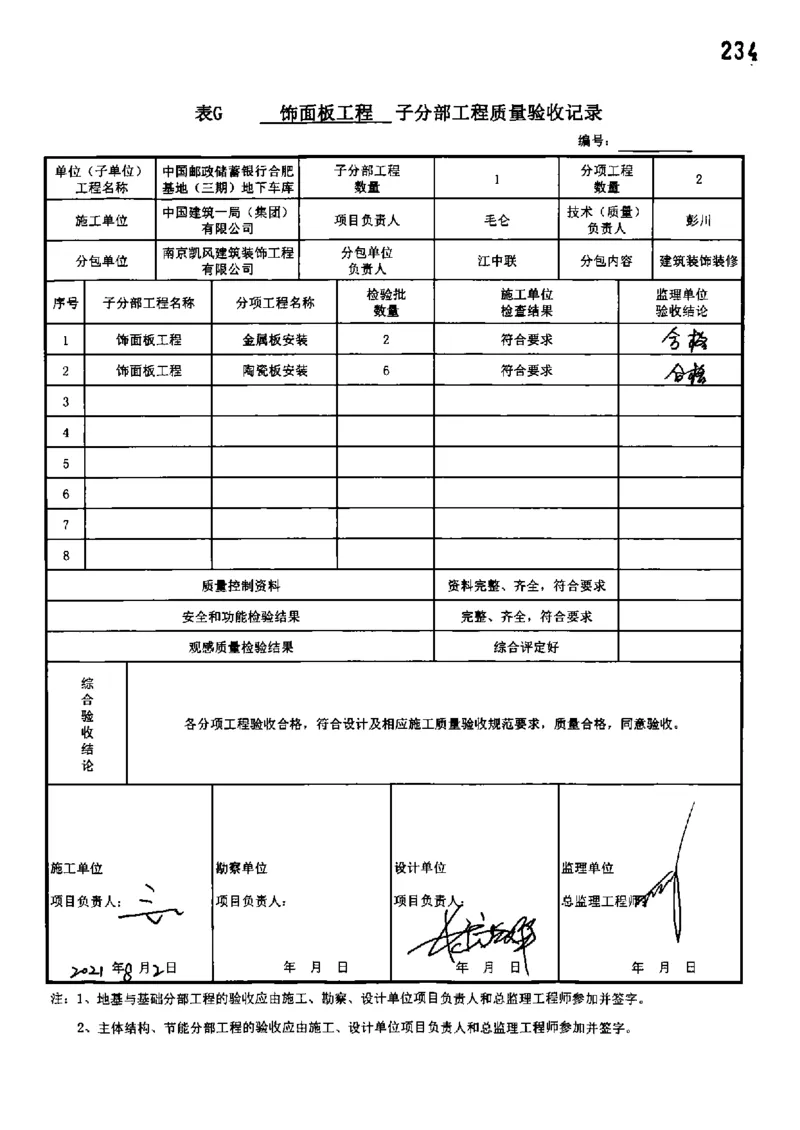 234
表G 饰面板工程 子分部工程质量验收记录
编号:
单位(子单位)工程名称 中国邮政储蓄银行合肥基地(三期)地下车库 子分部工程数量 1 分项工程数量 2
施工单位 中国建筑一局(集团)有限公司 项目负责人 毛仑 技术(质量)负责人 彭川
分包单位 南京凯风建筑装饰工程有限公司 分包单位负责人 江中联 分包内容 建筑装饰装修
序号 子分部工程名称 分项工程名称 检验批数量 施工单位检查结果 监理单位验收结论
1 饰面板工程 金属板安装 2 符合要求 合格
2 饰面板工程 陶瓷板安装 6 符合要求 合格
3
4
5
6
7
8
质量控制资料 资料完整、齐全,符合要求
安全和功能检验结果 完整、齐全,符合要求
观感质量检验结果 综合评定好
综合验收结论 各分项工程验收合格,符合设计及相应施工质量验收规范要求,质量合格,同意验收。
施工单位 勘察单位 设计单位 监理单位
项目负责人: 项目负责人: 项目负责人: 总监理工程师
2021年8月2日 年 月 日 年 月 日 年 月 日
注:1、地基与基础分部工程的验收应由施工、勘察、设计单位项目负责人和总监理工程师参加并签字。
2、主体结构、节能分部工程的验收应由施工、设计单位项目负责人和总监理工程师参加并签字。